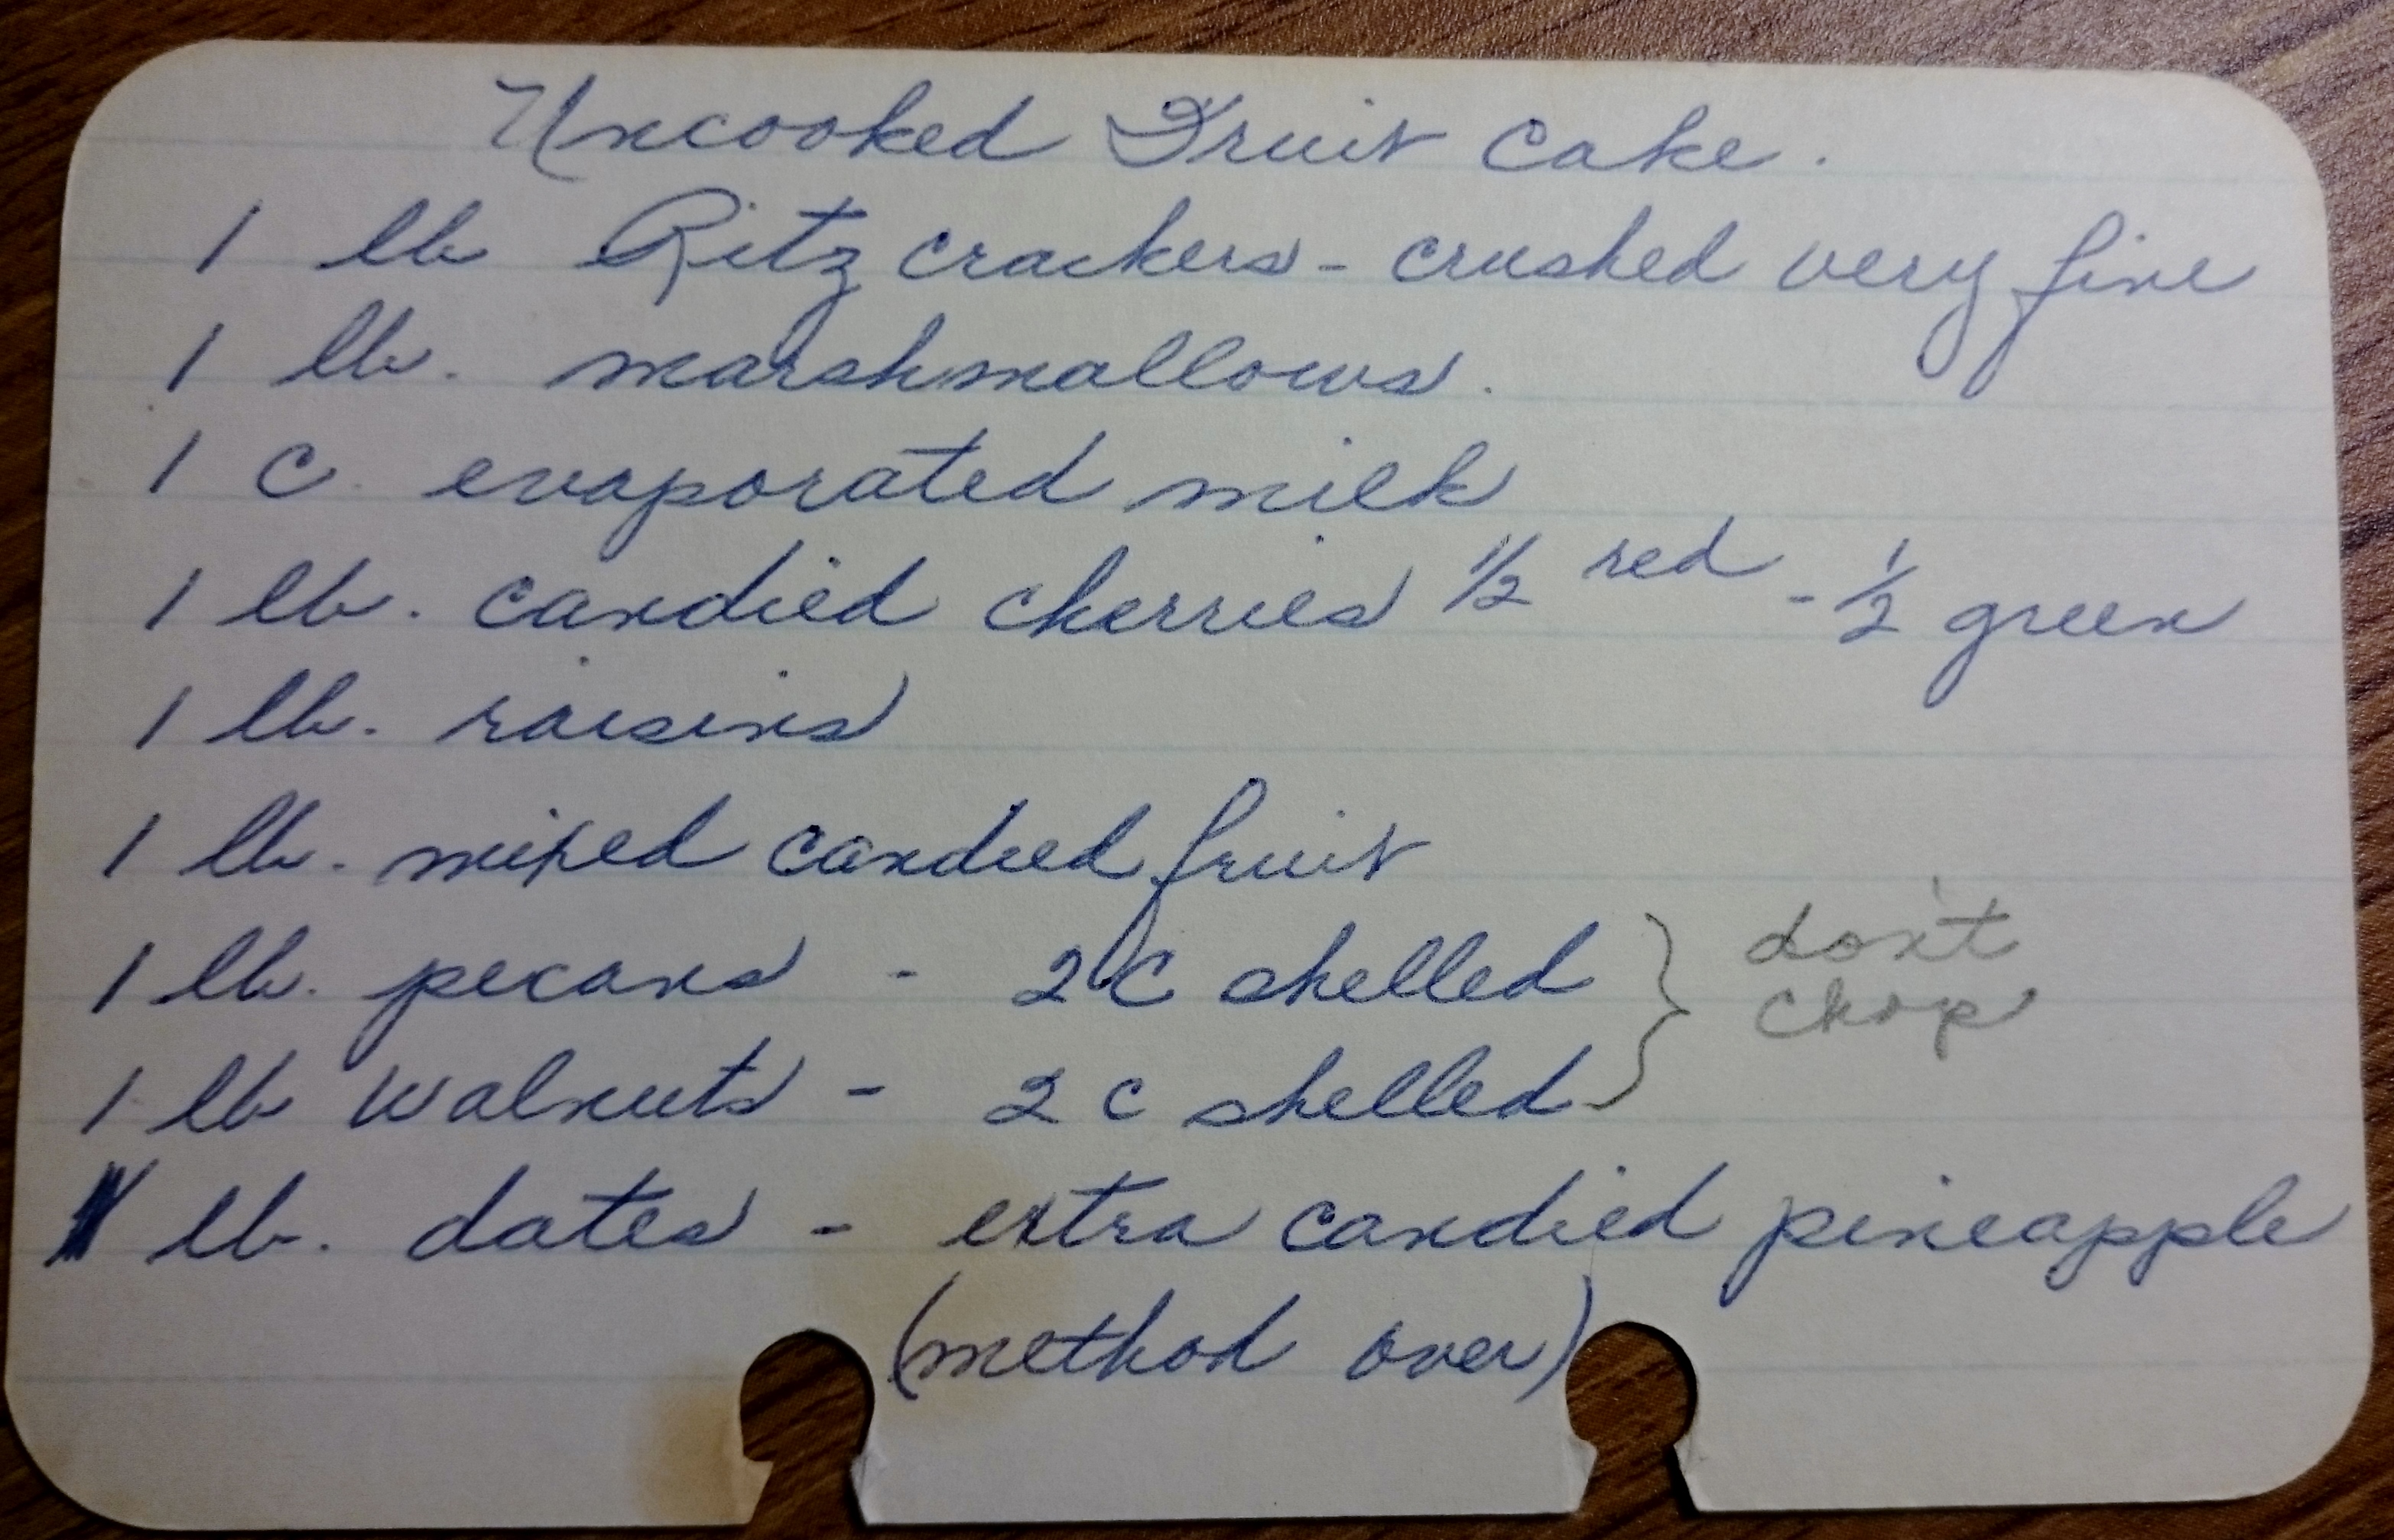 Uncooked Fruit Cake.
1 lb Ritz crackers - crushed very fine
1 lb. marshmallows.
1 c. evaporated milk
1 lb. candied cherries 1/2 red - 1/2 green
1 lb. raisins
1 lb. mixed candied fruit
1 lb. pecans - 2 c shelled } don't
chop
1 lb walnuts - 2 c shelled
1 lb. dates - extra candied pineapple
(method over)